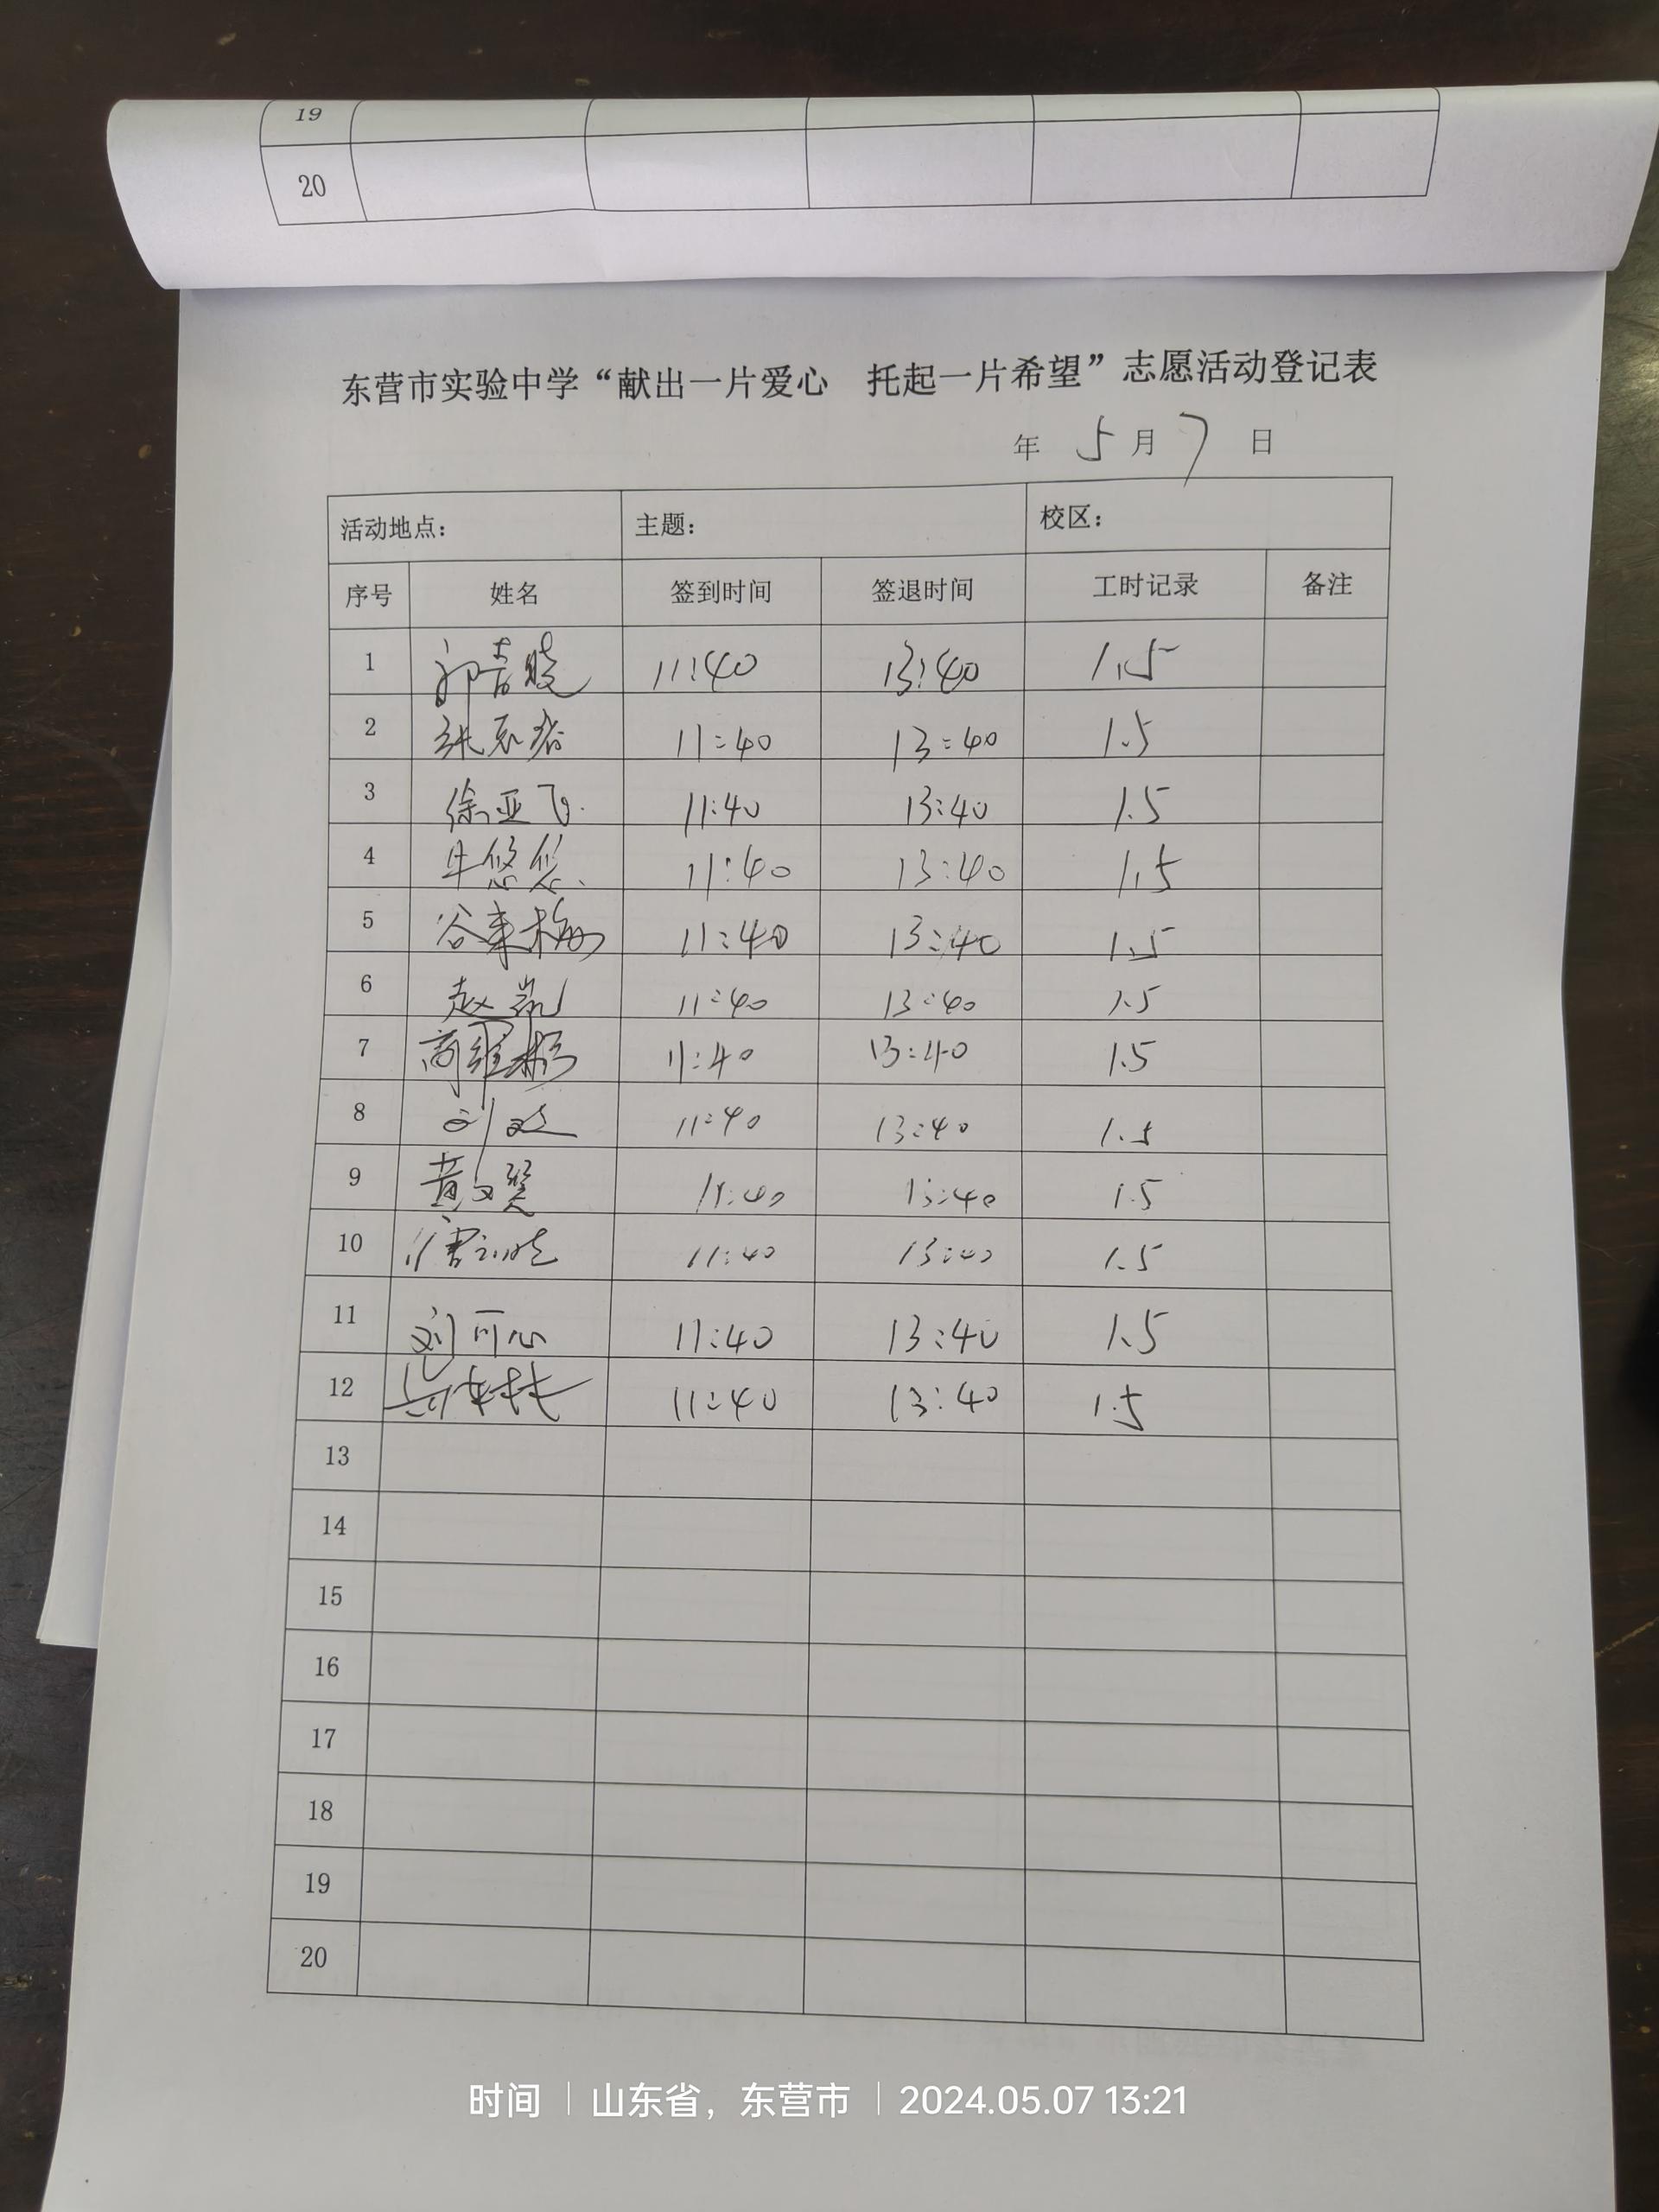 19
20
东营市实验中学“献出一片爱心 托起一片希望”志愿活动登记表
年 5 月 7 日
活动地点: 主题: 校区:
序号 姓名 签到时间 签退时间 工时记录 备注
1 11:40 13:40 1.5
2 11:40 13:40 1.5
3 徐亚飞 11:40 13:40 1.5
4 牛悠悠 11:40 13:40 1.5
5 谷来梅 11:40 13:40 1.5
6 赵凯 11:40 13:40 1.5
7 11:40 13:40 1.5
8 11:40 13:40 1.5
9 11:40 13:40 1.5
10 11:40 13:40 1.5
11 刘可心 11:40 13:40 1.5
12 11:40 13:40 1.5
13
14
15
16
17
18
19
20
时间 | 山东省，东营市 | 2024.05.07 13:21